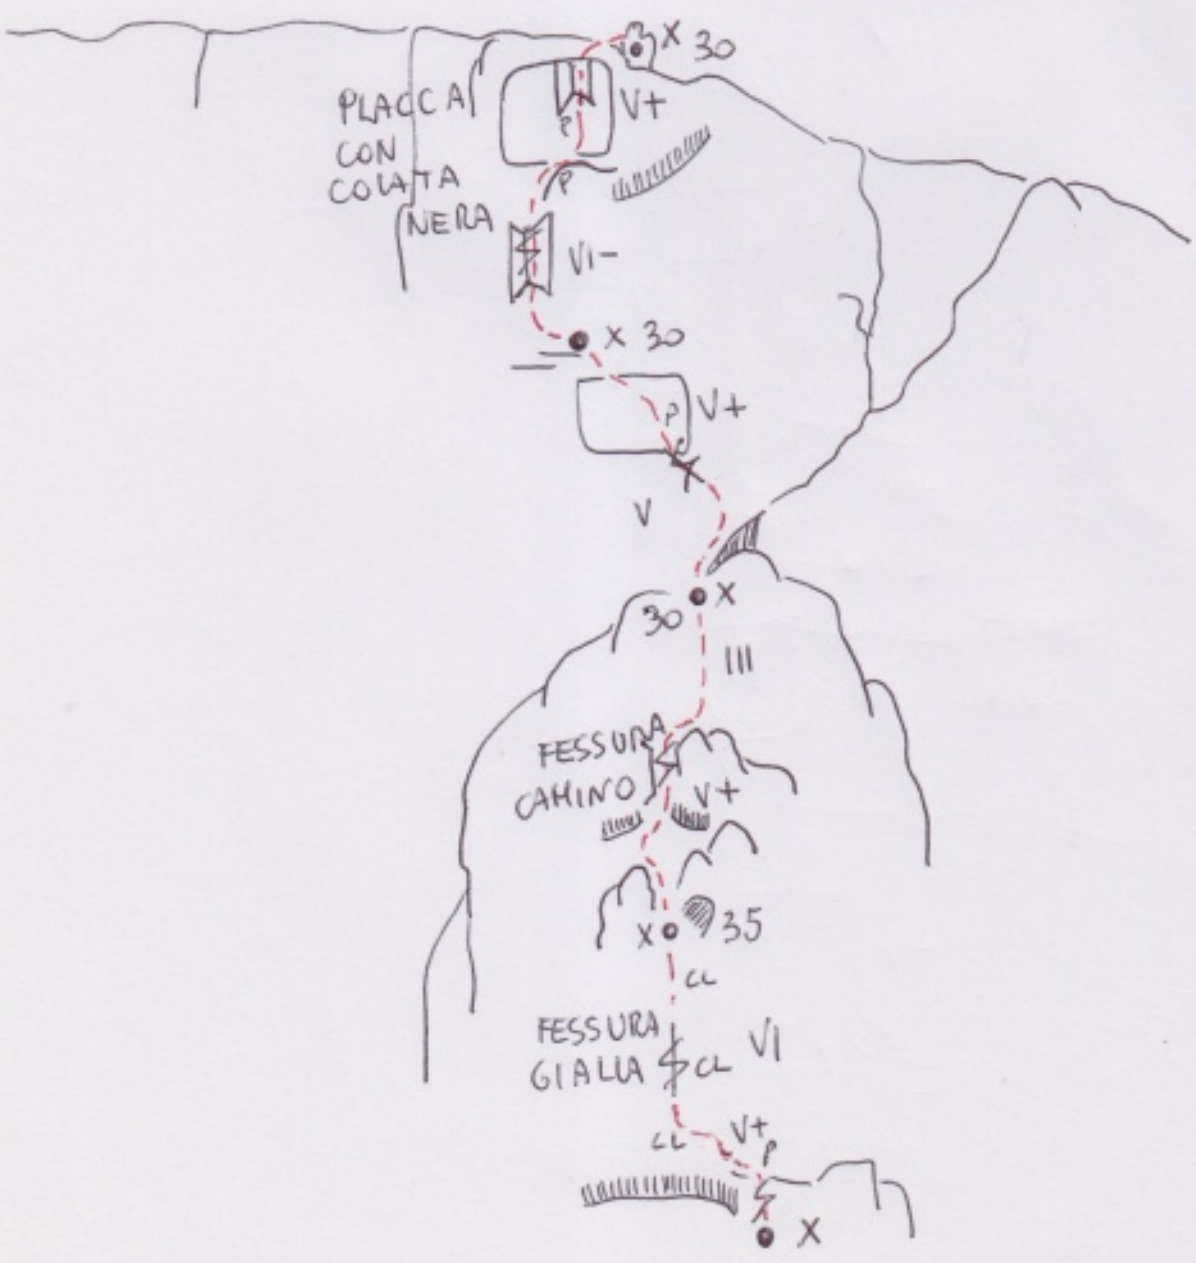 X 30
PLACCA
CON
COLATA
NERA
V+
P
P
VI-
X 30
P
V+
V
X
30
III
FESSURA
CAMINO
V+
X
35
CL
FESSURA
GIALLA
CL
VI
CL
V+
P
X